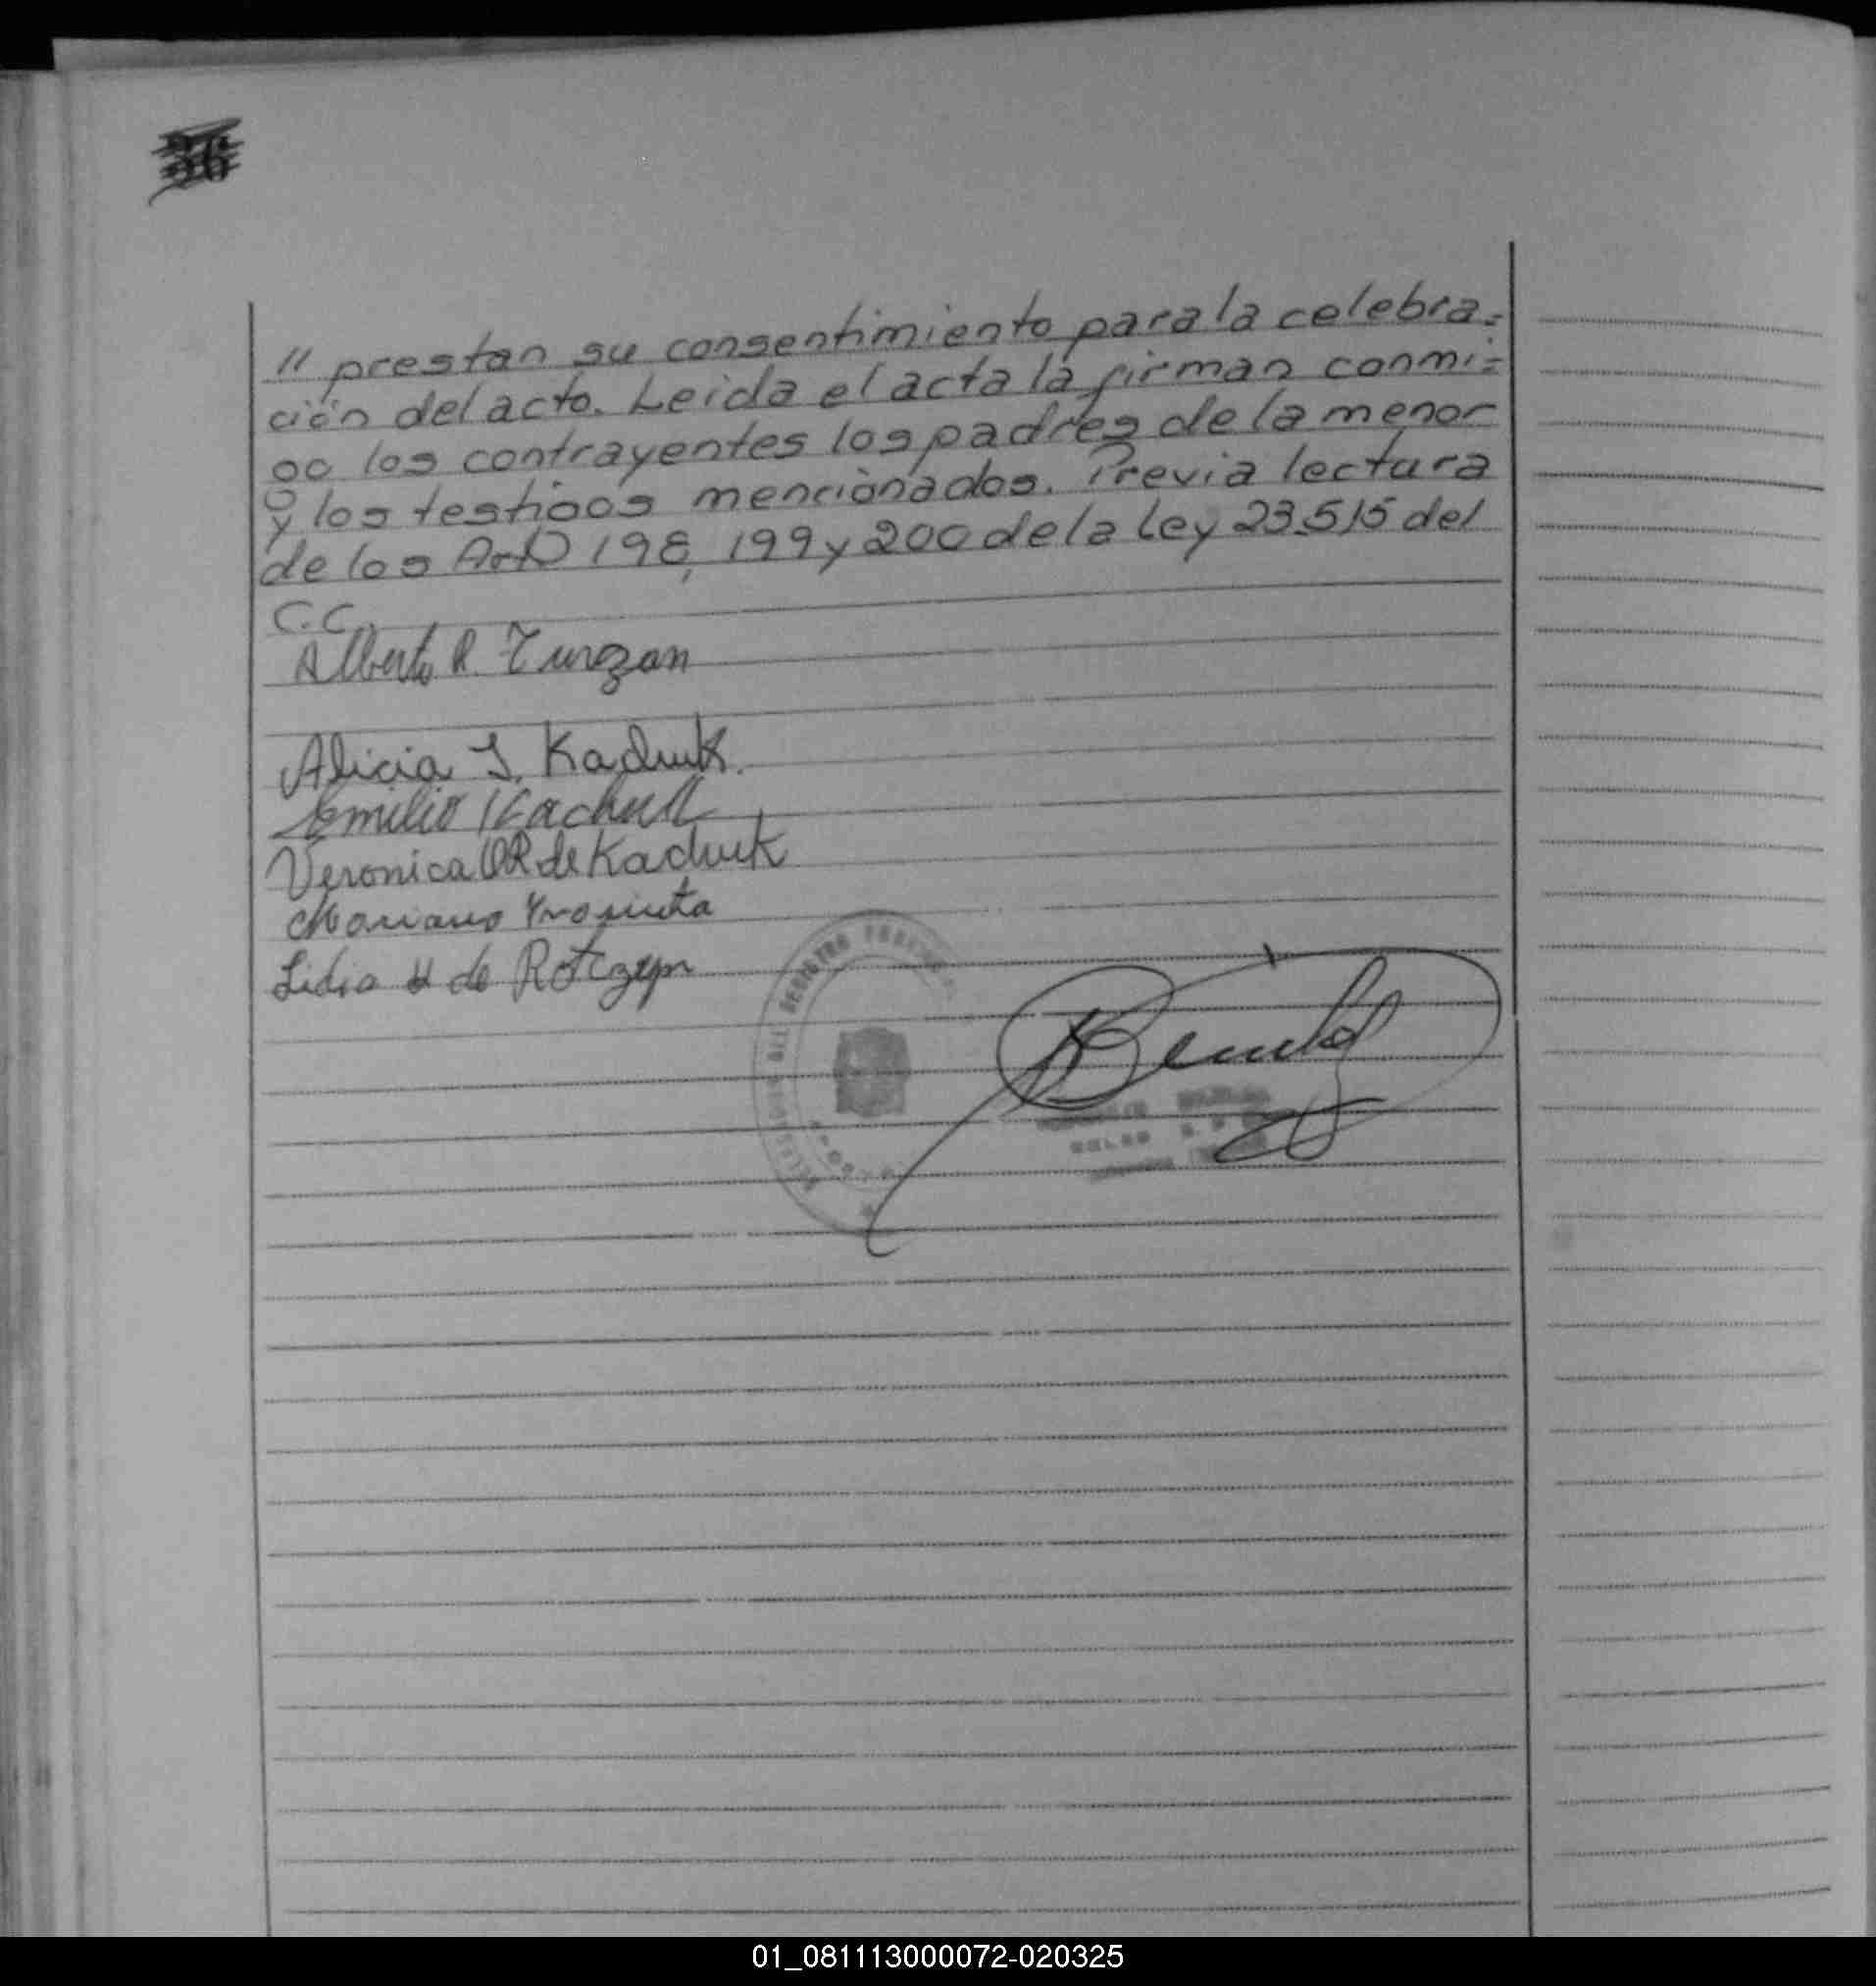 36
" prestan su consentimiento para la celebra=
ción del acto. Leida el acta la firman conmi=
go los contrayentes los padres de la menor
y los testigos mencionados. Previa lectura
de los Art° 198, 199 y 200 de la Ley 23.515 del
C.C.
Alberto R. Turzan
Alicia I. Kachuk.
Emilio Kachuk
Veronica de Kachuk
Mariano
Lidia H de Rotczyn
DEL REGISTRO
01_081113000072-020325